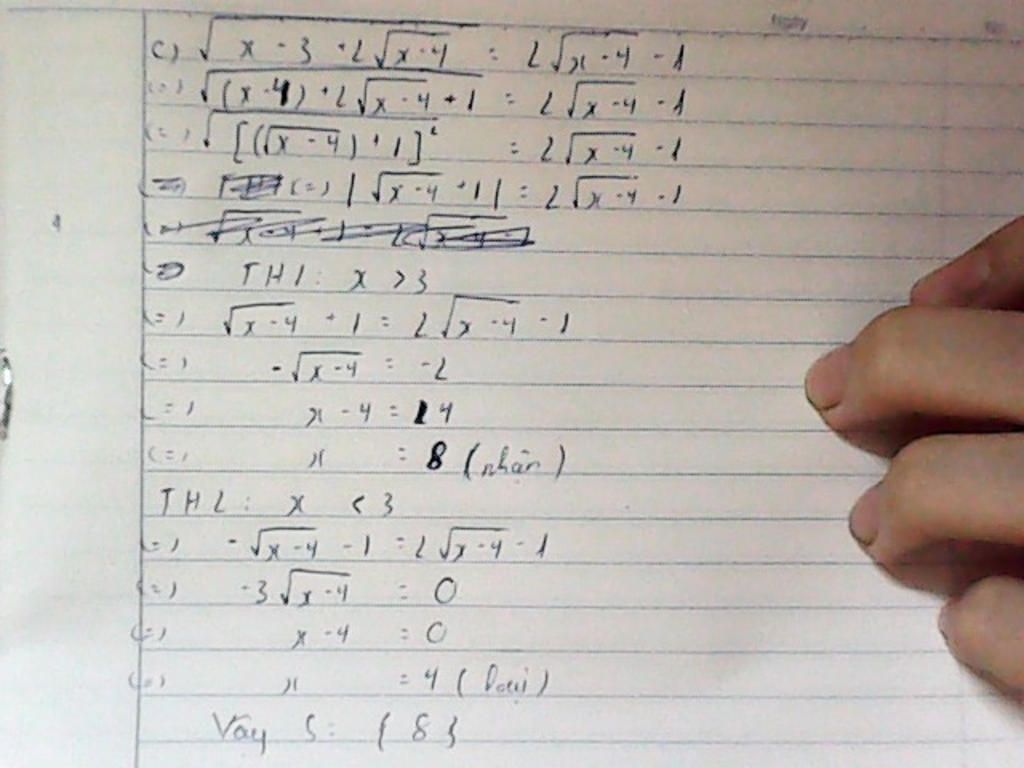 Ngày
c) √(x - 3 + 2√(x-4)) = 2√(x-4) - 1
(=) √((x-4) + 2√(x-4) + 1) = 2√(x-4) - 1
(=) √([(√(x-4)) + 1]²) = 2√(x-4) - 1
(=) |√(x-4) + 1| = 2√(x-4) - 1
TH1: x > 3
(=) √(x-4) + 1 = 2√(x-4) - 1
(=) -√(x-4) = -2
(=) x - 4 = 4
(=) x = 8 (nhận)
TH2: x < 3
(=) -√(x-4) - 1 = 2√(x-4) - 1
(=) -3√(x-4) = 0
(=) x - 4 = 0
(=) x = 4 (loại)
Vậy S = {8}